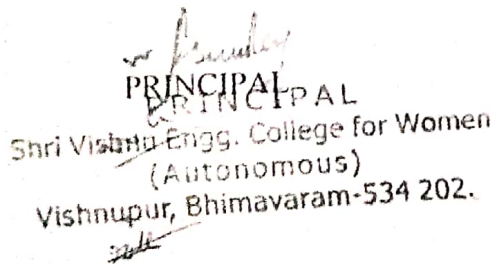 PRINCIPAL
PRINCIPAL
Shri Vishnu Engg. College for Women
(Autonomous)
Vishnupur, Bhimavaram-534 202.